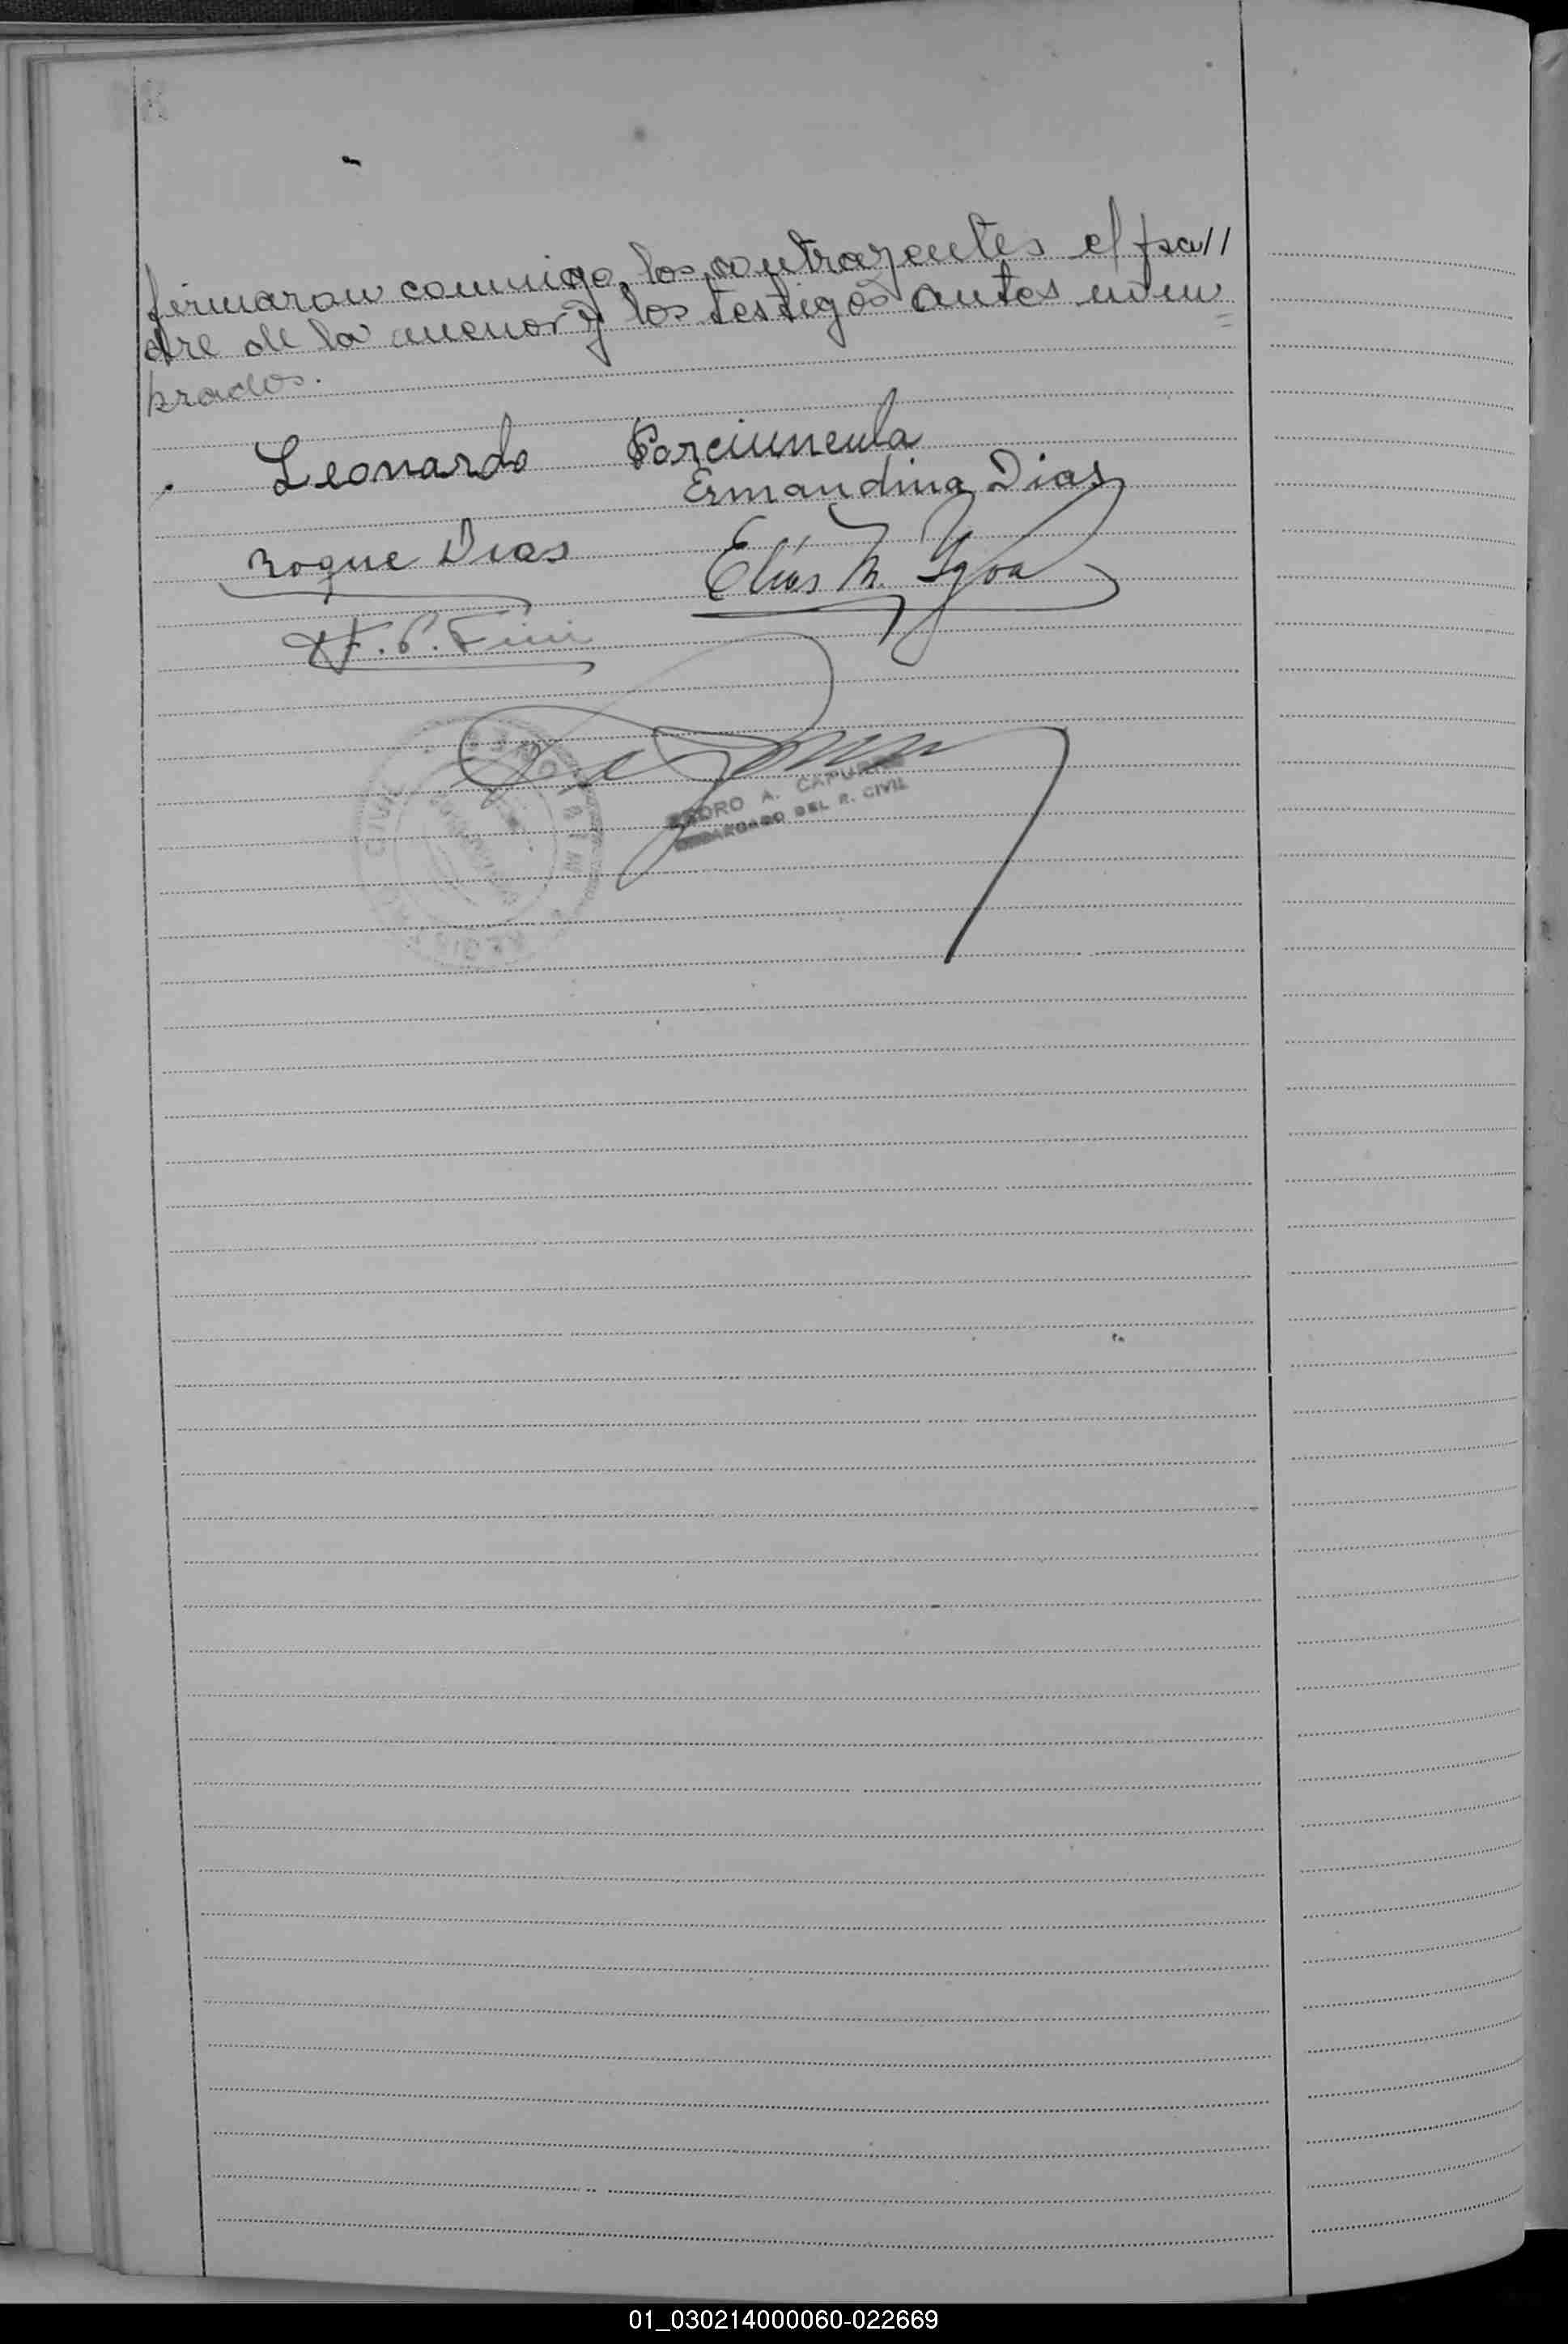 firmaron conmigo, los contrayentes el pa//
dre de la menor y los testigos antes nom=
brados.
Leonardo Porciuncula
Ermandina Dias
Roque Dias
Elías M. Ygoa
PEDRO A. CAPURRO
ENCARGADO DEL R. CIVIL
CIVIL
01_030214000060-022669